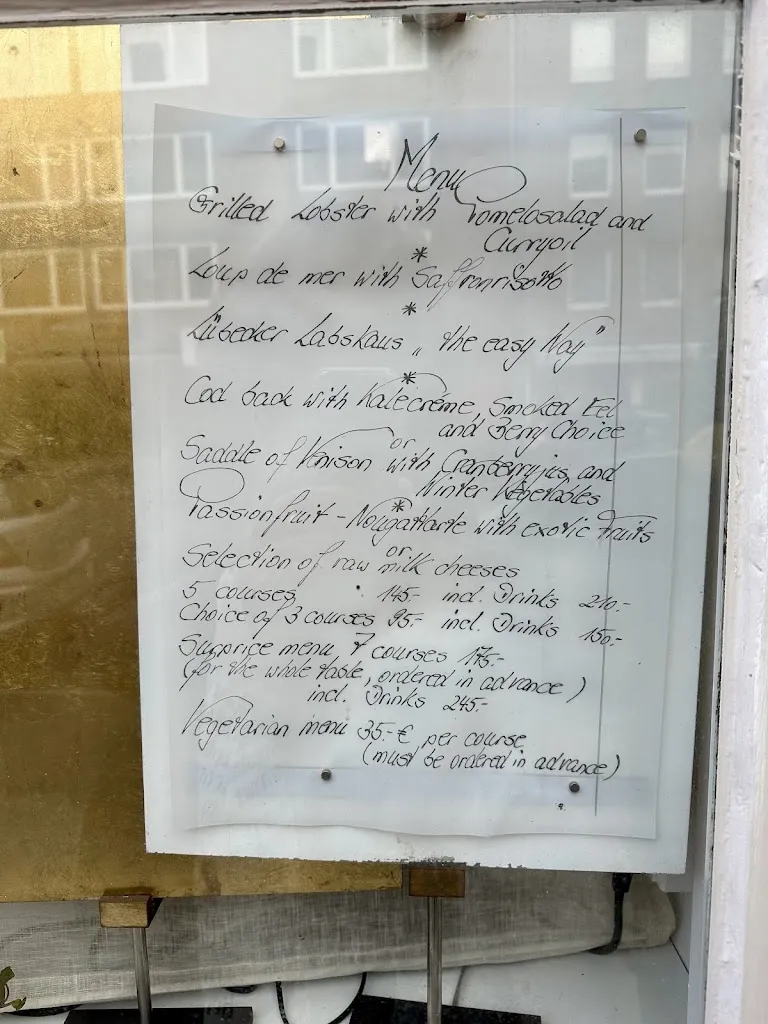 Menu
Grilled Lobster with Pomelosalad and
Curryoil
*
Loup de mer with Saffronrisotto
*
Lübecker Labskaus „the easy Way"
*
Cod back with Kalecrème, Smoked Eel
and Berry Choice
or
Saddle of Venison with Cranberryjus and
Winter Vegetables
*
Passionfruit - Nougattarte with exotic Fruits
or
Selection of raw milk cheeses
5 courses 145.- incl. Drinks 210.-
Choice of 3 courses 95.- incl. Drinks 150.-
Surprice menu 7 courses 175.-
(for the whole table, ordered in advance)
incl. Drinks 245.-
Vegetarian menu 35.-€ per course
(must be ordered in advance)